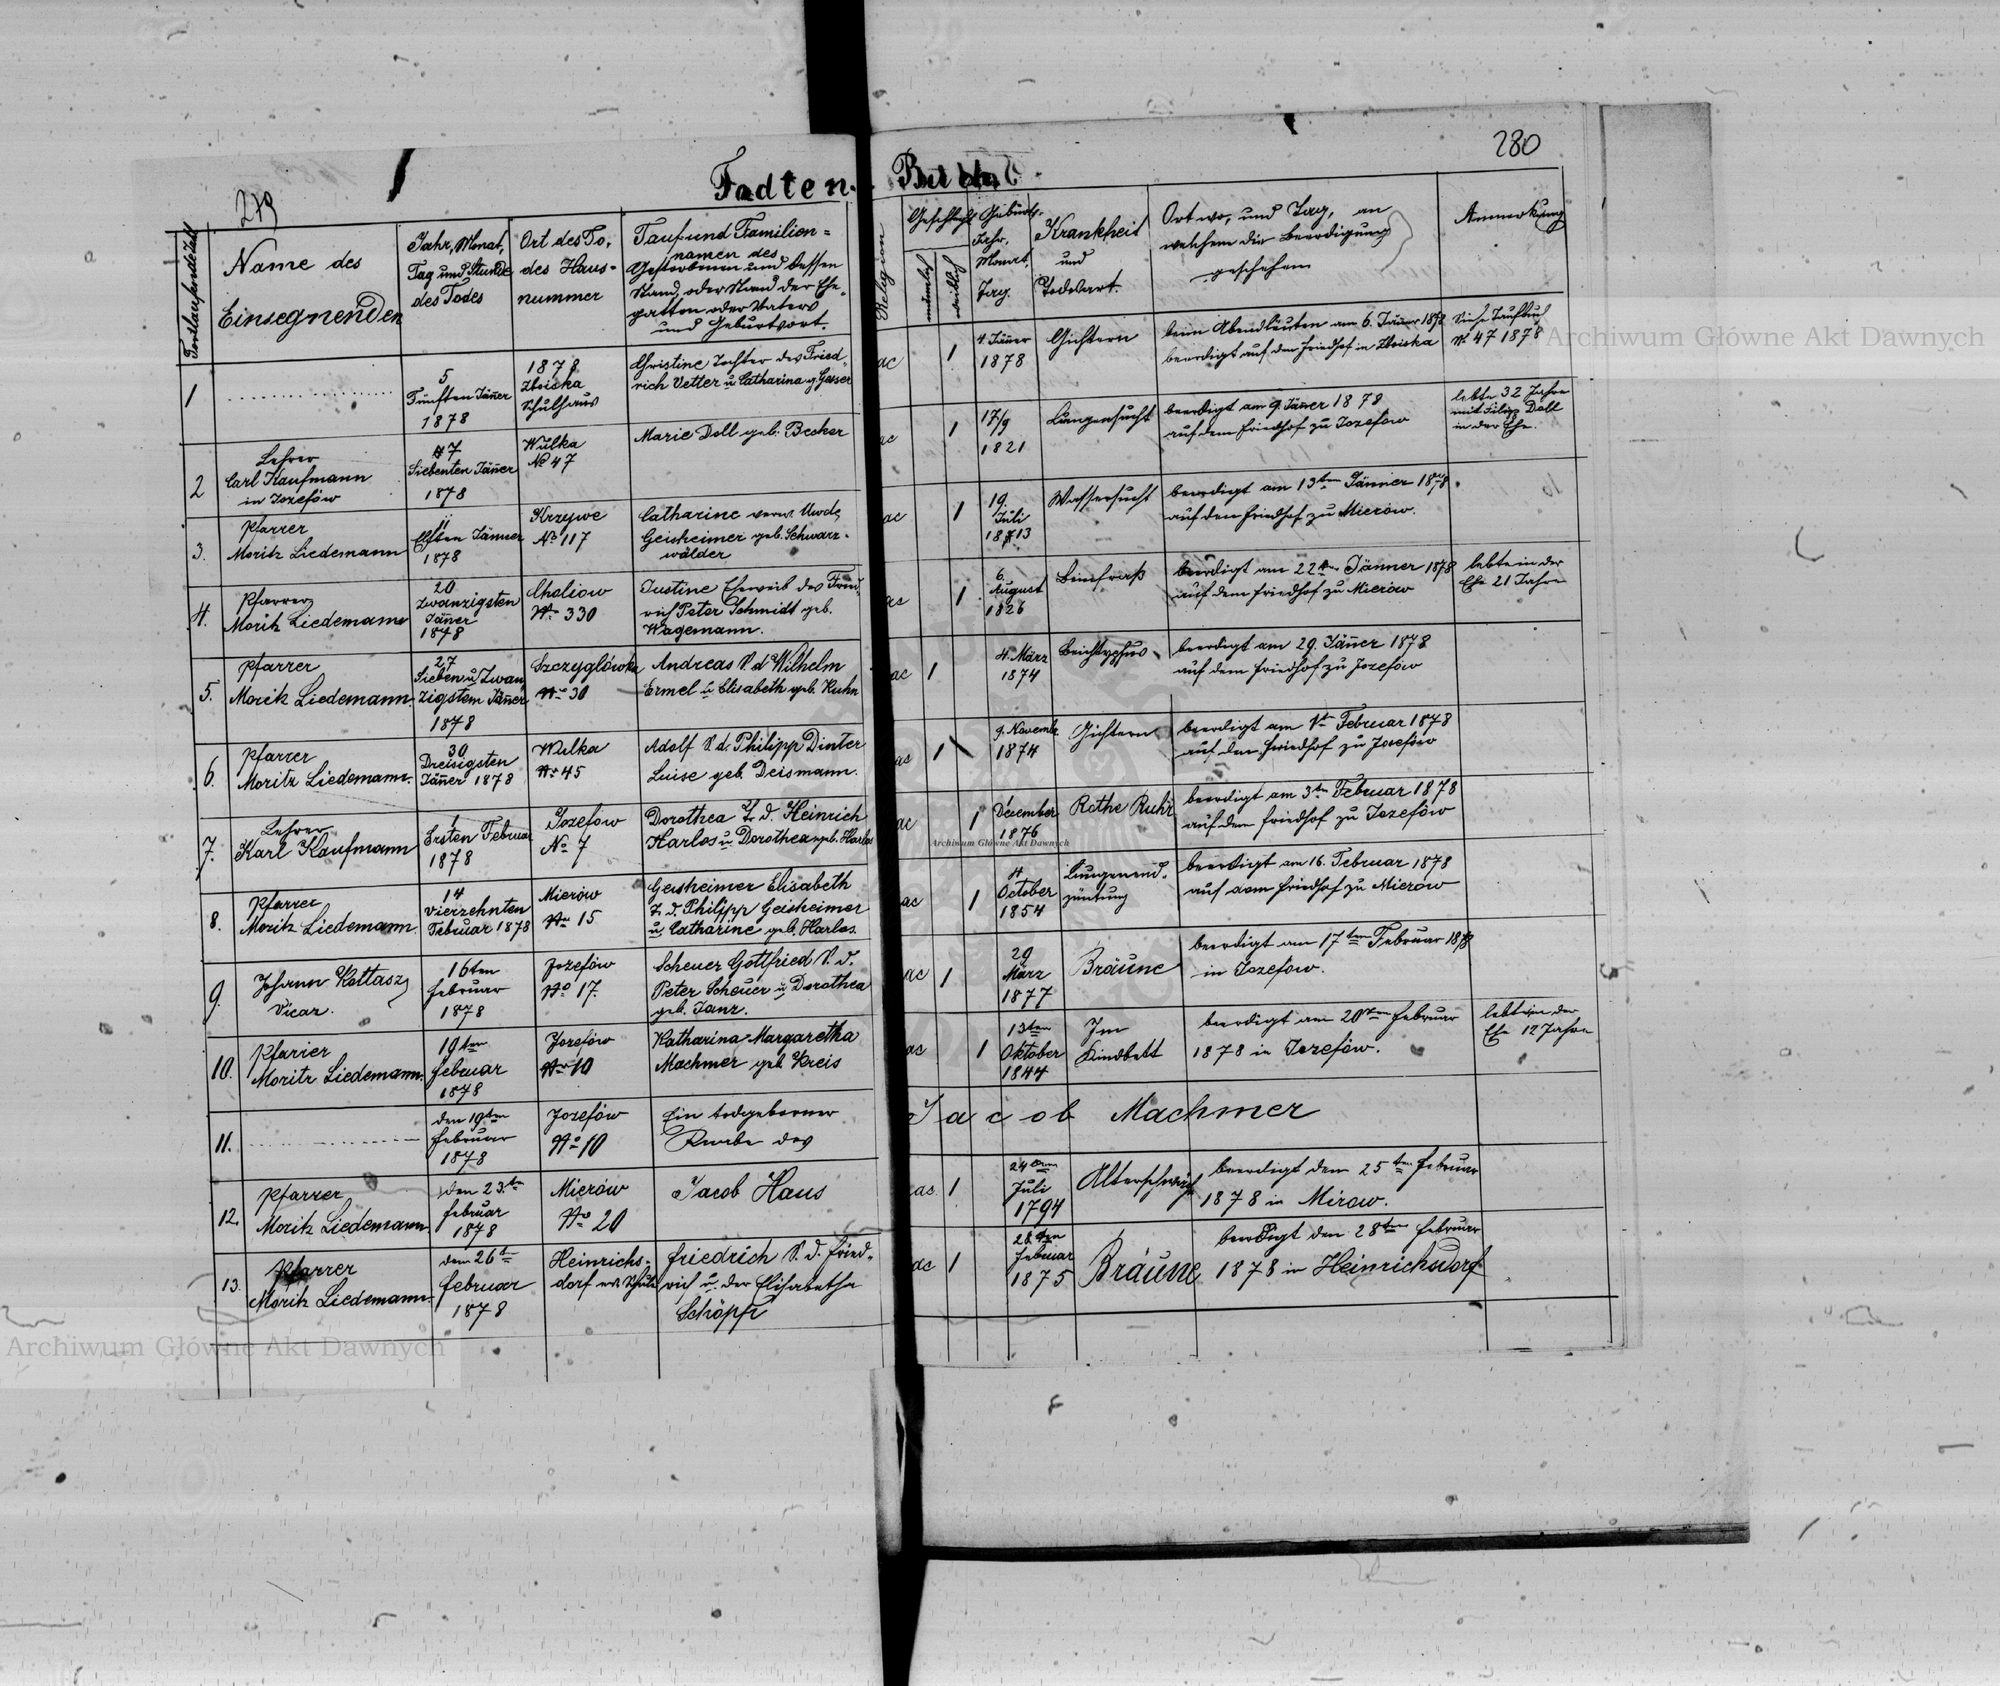 279
280
Todten-
Buch
Fortlaufendezahl
Name des
Einsegnenden
Jahr, Monat,
Tag und Stunde
des Todes
Ort des To,
des Haus-
nummer
Tauf und Familien=
namen des
Gestorbenen und dessen
Stand, oder Stand der Ehe-
gatten oder Vaters
und Geburtsort.
Religion
Geschlecht
männlich
weiblich
Geburts-
Jahr,
Monat,
Tag.
Krankheit
und
Todesart.
Ort wo, und Tag, an
welchem die Beerdigung
geschehen
Anmerkung
1
5
Fünften Jäner
1878
1878
Zboiska
Schulhaus
Christine Tochter des Fried-
rich Vetter u Catharina g. Gesser
ac
1
4. Jäner
1878
Gichtern
beim Abendläuten am 6. Jäner 1878
beerdigt auf dem Friedhof in Zboiska
Siehe Taufbuch
No 47 1878
2
Lehrer
Carl Kaufmann
in Jozefów
7
Siebenten Jäner
1878
Wulka
No 47
Marie Doll geb. Becker
ac
1
17/9
1821
Lungensucht
beerdigt am 9 Jäner 1878
auf dem Friedhof zu Jozefów
lebte 32 Jahre
mit Filipp Doll
in der Ehe.
3.
Pfarrer
Moritz Liedemann
11
Elften Jänner
1878
Krzywe
No 117
Catharine verw.
Geisheimer geb. Schwarz-
wälder
ac
1
19
Juli
1813
Wassersucht
beerdigt am 13ten Jänner 1878.
auf dem Friedhof zu Mierów.
4.
Pfarrer
Moritz Liedemann
20
Zwanzigsten
Jäner
1878
Choliow
No 330
Justine Eheweib des Fried-
rich Peter Schmidt geb.
Wagemann.
ac
1
6.
August
1826
Beinfraß
beerdigt am 22ten Jänner 1878
auf dem Friedhof zu Mierów
lebte in der
Ehe 21 Jahre
5.
Pfarrer
Moritz Liedemann.
27
Sieben u Zwan
zigstem Jäner
1878
Szczyglówka
No 30
Andreas S. d Wilhelm
Ermel u Elisabeth geb. Kuhn
ac
1
4. März
1874
beerdigt am 29. Jäner 1878
auf dem Friedhof zu Jozefów
6.
Pfarrer
Moritz Liedemann.
30
Dreisigsten
Jäner 1878
Wulka
No 45
Adolf S. d Philipp Dinter
Luise geb. Deismann.
ac
1
9. Novembr
1874
Gichtern
beerdigt am 1ten Februar 1878
auf dem Friedhof zu Jozefów
7.
Lehrer
Karl Kaufmann
1
Ersten Februar
1878
Jozefow
No 7
Dorothea T. d. Heinrich
Harlos u Dorothea geb. Harlos
ac
1
December
1876
Rothe Ruhr
beerdigt am 3ten Februar 1878
auf dem Friedhof zu Jozefów
8.
Pfarrer
Moritz Liedemann.
14
Vierzehnten
Februar 1878
Mierów
No 15
Geisheimer Elisabeth
T. d. Philipp Geisheimer
u. Catharine geb. Harlos.
ac
1
4
October
1854
Lungenend.
zündung
beerdigt am 16. Februar 1878
auf dem Friedhof zu Mierów
9.
Johann Kottasz
Vicar.
16ten
Februar
1878
Jozefów
No 17.
Scheuer Gottfried S. d.
Peter Scheuer u Dorothea
geb. Janz.
ac
1
29
März
1877
Bräune
beerdigt am 17ten Februar 1878
in Jozefow.
10.
Pfarrer
Moritz Liedemann.
19ten
Februar
1878
Jozefów
No 10
Katharina Margaretha
Machmer geb. Kreis
ac
1
13ten
Oktober
1844
Im
Kindbett
beerdigt am 20ten Februar
1878 in Jozefów.
lebte in der
Ehe 12 Jahre
11.
den 19ten
Februar
1878
Jozefów
No 10
Ein todgeborner
Knabe des
Jacob Machmer
12.
Pfarrer
Moritz Liedemann.
den 23.ten
Februar
1878
Mierów
No 20
Jacob Haus
ac.
1
24ten
Juli
1794
Alterschwäche
beerdigt dem 25ten Februar
1878 in Mirow.
13.
Pfarrer
Moritz Liedemann.
dem 26ten
Februar
1878
Heinrichs-
dorf
Friedrich S. d. Fried-
rich u. der Elisabetha
Schöpp
ac
1
Februar
1875
Bräune
beerdigt den 28ten Februar
1878 in Heinrichsdorf
Archiwum Główne Akt Dawnych
Archiwum Główne Akt Dawnych
Archiwum Główne Akt Dawnych